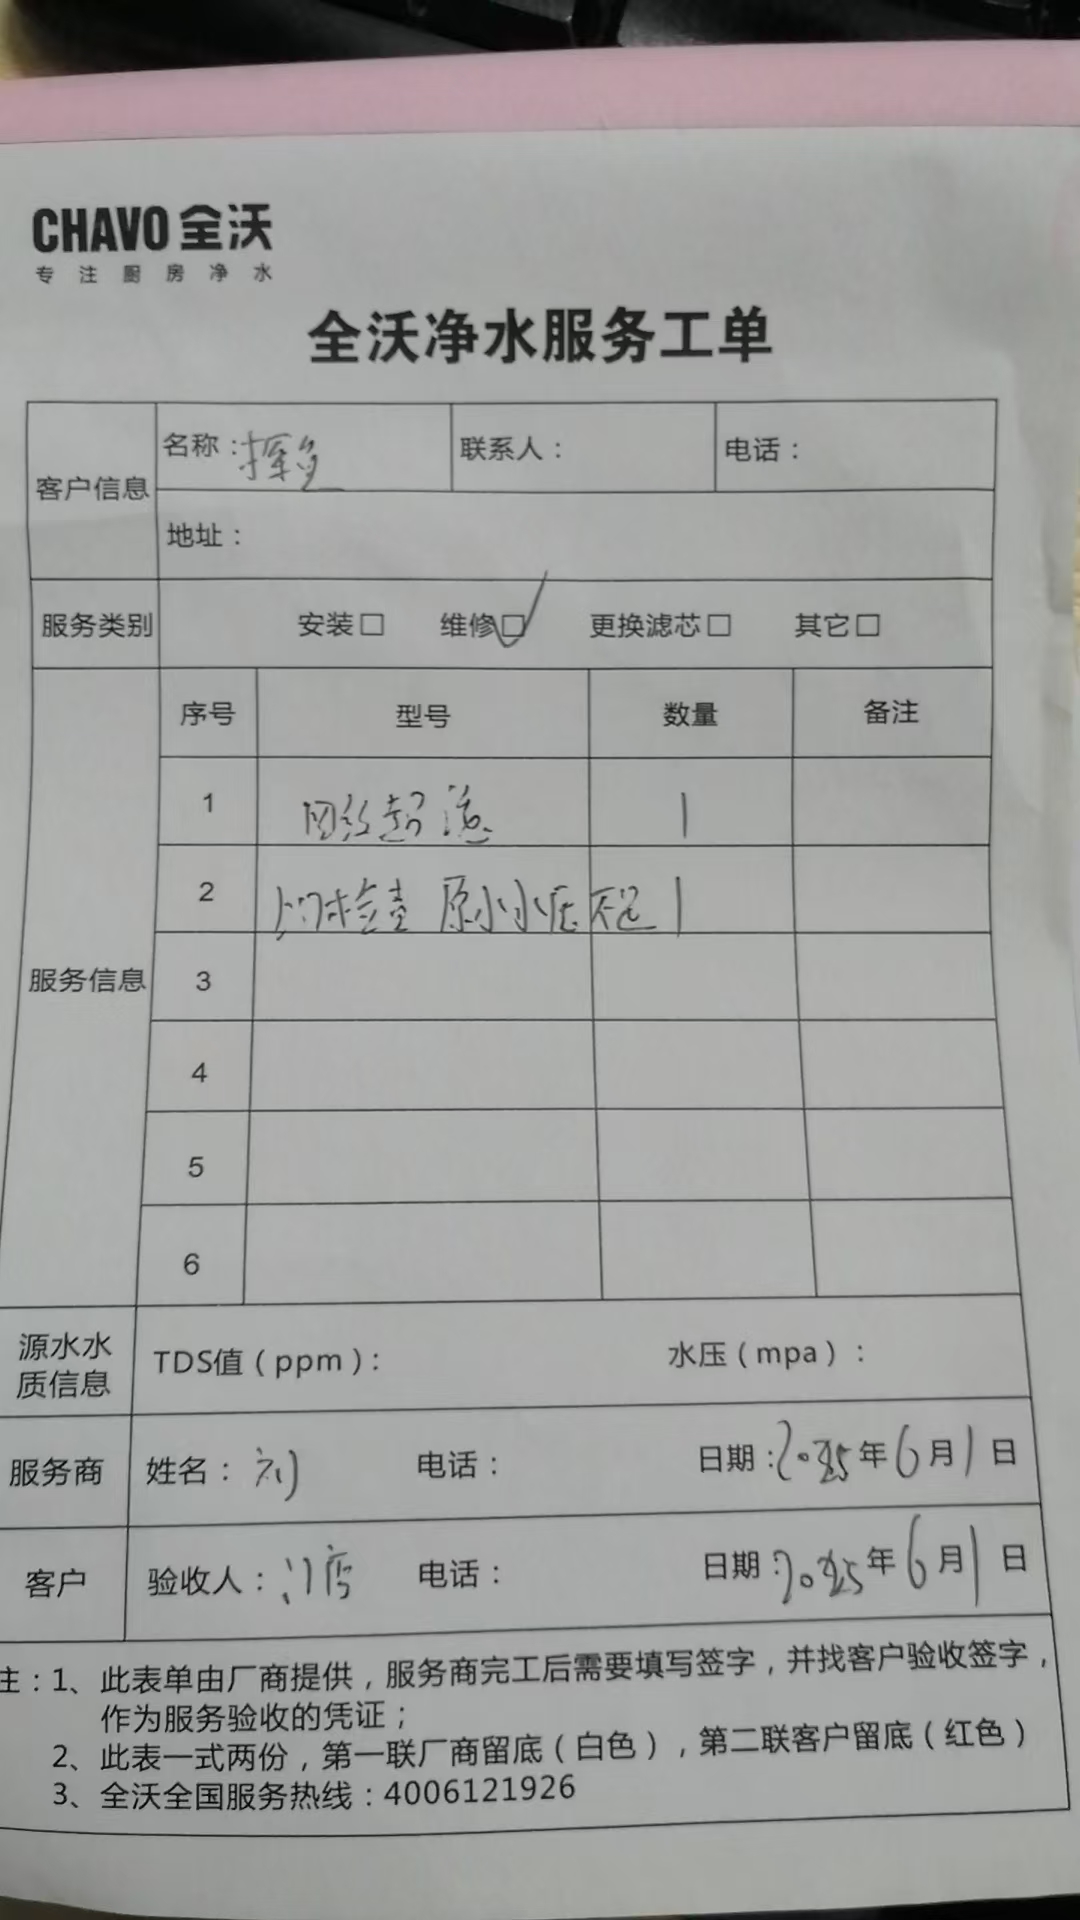 CHAVO 全沃
专注厨房净水
全沃净水服务工单
客户信息 名称： 联系人： 电话：
地址：
服务类别 安装□ 维修□✓ 更换滤芯□ 其它□
服务信息 序号 型号 数量 备注
1 超滤 1
2 上门检查 原水水压不足 1
3
4
5
6
源水水质信息 TDS值（ppm）： 水压（mpa）：
服务商 姓名：刘 电话： 日期：2025年6月1日
客户 验收人：门店 电话： 日期：2025年6月1日
注：1、此表单由厂商提供，服务商完工后需要填写签字，并找客户验收签字，
作为服务验收的凭证；
2、此表一式两份，第一联厂商留底（白色），第二联客户留底（红色）
3、全沃全国服务热线：4006121926